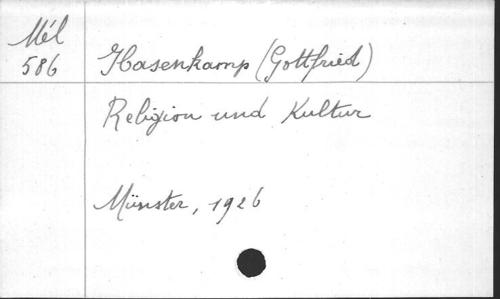 Mél
586
Hasenkamp (Gottfried)
Religion und Kultur
Münster, 1926